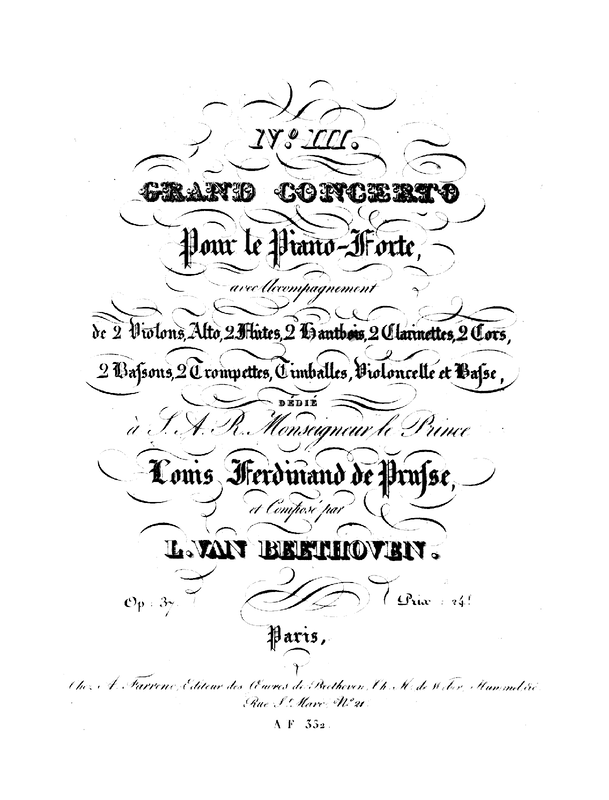 Nº III.
GRAND CONCERTO
Pour le Piano-Forte,
avec Accompagnement
de 2 Violons, Alto, 2 Flûtes, 2 Hautbois, 2 Clarinettes, 2 Cors,
2 Baſsons, 2 Trompettes, Timballes, Violoncelle et Baſse,
DÉDIÉ
à S. A. R. Monseigneur le Prince
Louis Ferdinand de Pruſse,
et Composé par
L. VAN BEETHOVEN.
Op: 37. Prix: 24f
Paris,
Chez A. Farrenc, Editeur des Œuvres de Beethoven, Ch. M. de Weber, Hummel &c
Rue St Marc Nº 21.
A F 332.